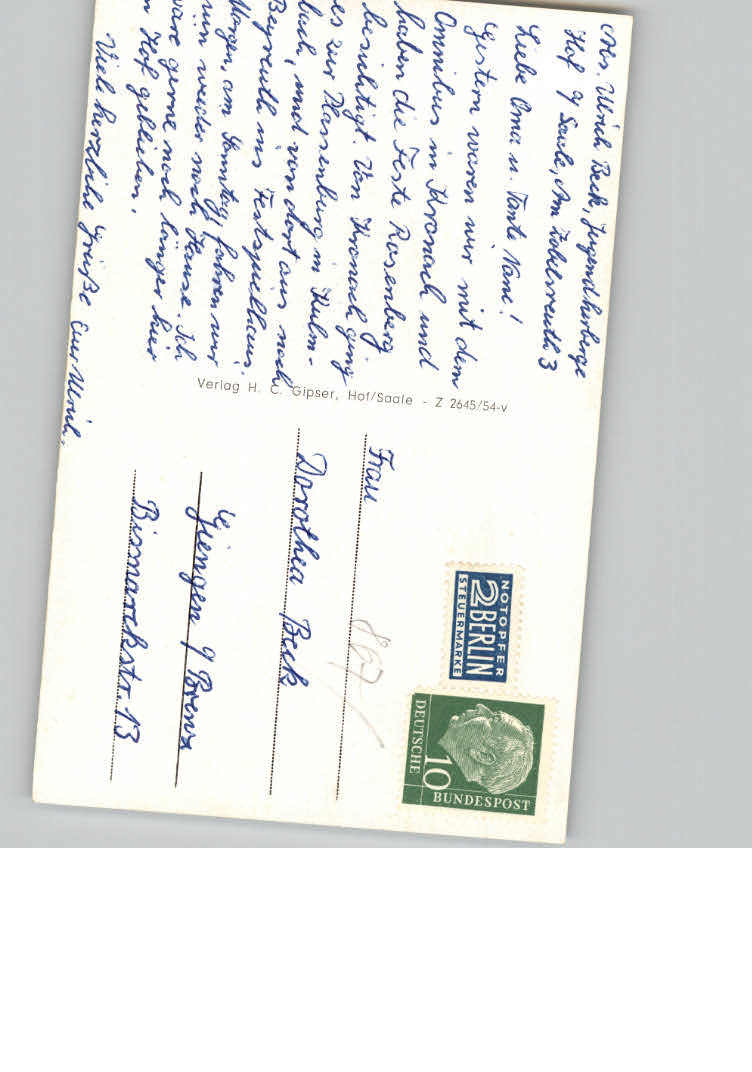 Abs. Ulrich Beck, Jugendherberge
Hof a/ Saale, Am Zobelsreuth 3
Liebe Oma u. Tante Nane!
Gestern waren wir mit dem
Omnibus in Kronach und
haben die Feste Rosenberg
besichtigt. Von Kronach ging
es zur Plassenburg in Kulm-
bach, und von dort aus nach
Bayreuth ins Festspielhaus.
Morgen, am Sonntag, fahren wir
nun wieder nach Hause. Ich
wäre gerne noch länger hier
in Hof geblieben.
Viele herzliche Grüße Euer Ulrich.
Verlag H. C. Gipser, Hof/Saale - Z 2645/54-v
NOTOPFER
2 BERLIN
STEUERMARKE
DEUTSCHE
10
BUNDESPOST
Frau
Dorothea Beck
Giengen a/ Brenz
Bismarckstr. 13